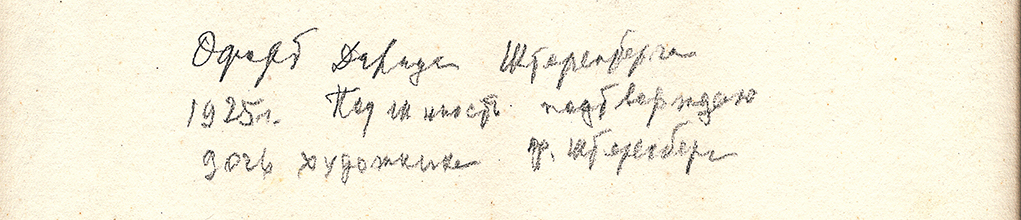 Офорт Давида Штеренберга
1925г. Подлинность подтверждаю
дочь художника Ф. Штеренберг